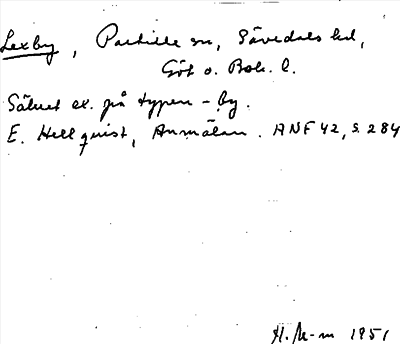 Lexby, Partille sn, Sävedals hd,
Göt o. Boh. l.
Säkert ex. på typen -by.
E. Hellquist, Anmälan. ANF 42, s. 284
H. M-m 1951